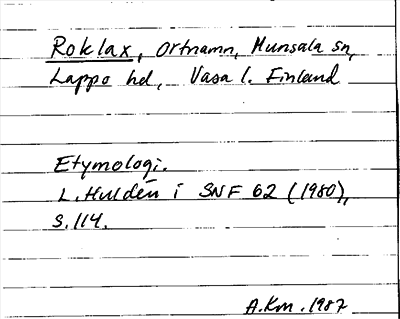 Roklax, Ortnamn, Munsala sn,
Lappo hd, Vasa l. Finland
Etymologi.
L. Huldén i SNF 62 (1980),
S. 114.
A.Km. 1987